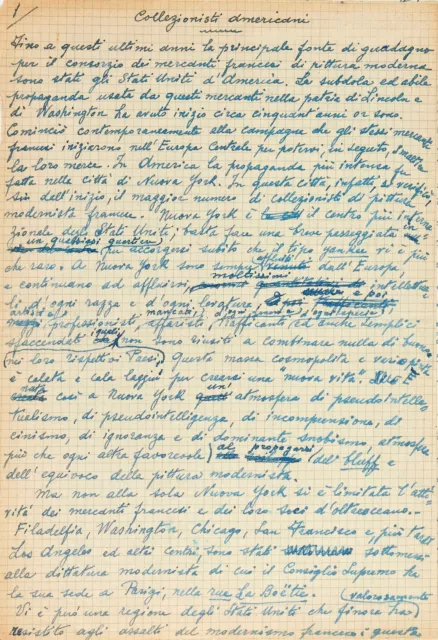 1
Collezionisti Americani
Fino a questi ultimi anni la principale fonte di guadagno
per il consorzio dei mercanti francesi di pittura moderna
sono stati gli Stati Uniti d'America. La subdola ed abile
propaganda usata da questi mercanti nella patria di Lincoln e
di Washington ha avuto inizio circa cinquant'anni or sono.
Cominciò contemporaneamente alla campagna che gli stessi mercanti
francesi iniziarono nell'Europa Centrale per potervi, in seguito, smerciare
la loro merce. In America la propaganda più intensa fu
fatta nella città di Nuova York. In questa città, infatti, si verificò,
sin dall'inizio, il maggior numero di collezionisti di pittura
modernista francese. Nuova York è il centro più interna
zionale degli Stati Uniti; basta fare una breve passeggiata in
un qualsiasi quartiere
per accorgersi subito che il tipo yankee vi è più
che raro. A Nuova York sono sempre affluiti dall'Europa,
moltissimi
e continuano ad affluirvi, intellettua
li d'ogni razza e d'ogni levatura,
artisti mancati d'ogni genere e d'ogni specie
professionisti, affaristi, trafficanti ed anche semplici
sfaccendati i quali non sono riusciti a combinare nulla di buono
nei loro rispettivi Paesi. Questa massa cosmopolita e
è calata e cala laggiù per crearsi una "nuova vita". È
nata così a Nuova York un' atmosfera di pseudointellet
tualismo, di pseudointelligenza, di incomprensione, di
cinismo, di ignoranza e di dominante snobismo, atmosfera
più che ogni altra favorevole al propagarsi del bluff e
dell'equivoco della pittura modernista.
Ma non alla sola Nuova York si è limitata l'atti
vità dei mercanti francesi e dei loro soci d'oltreoceano.
Filadelfia, Washington, Chicago, San Francisco e, più tardi
Los Angelos ed altri centri, sono stati sottomessi
alla dittatura modernista di cui il Consiglio Supremo ha
la sua sede a Parigi, nella rue La Boëtie.
Vi è però una regione degli Stati Uniti che finora ha valorosamente
resistito agli assalti del modernismo francese: questa